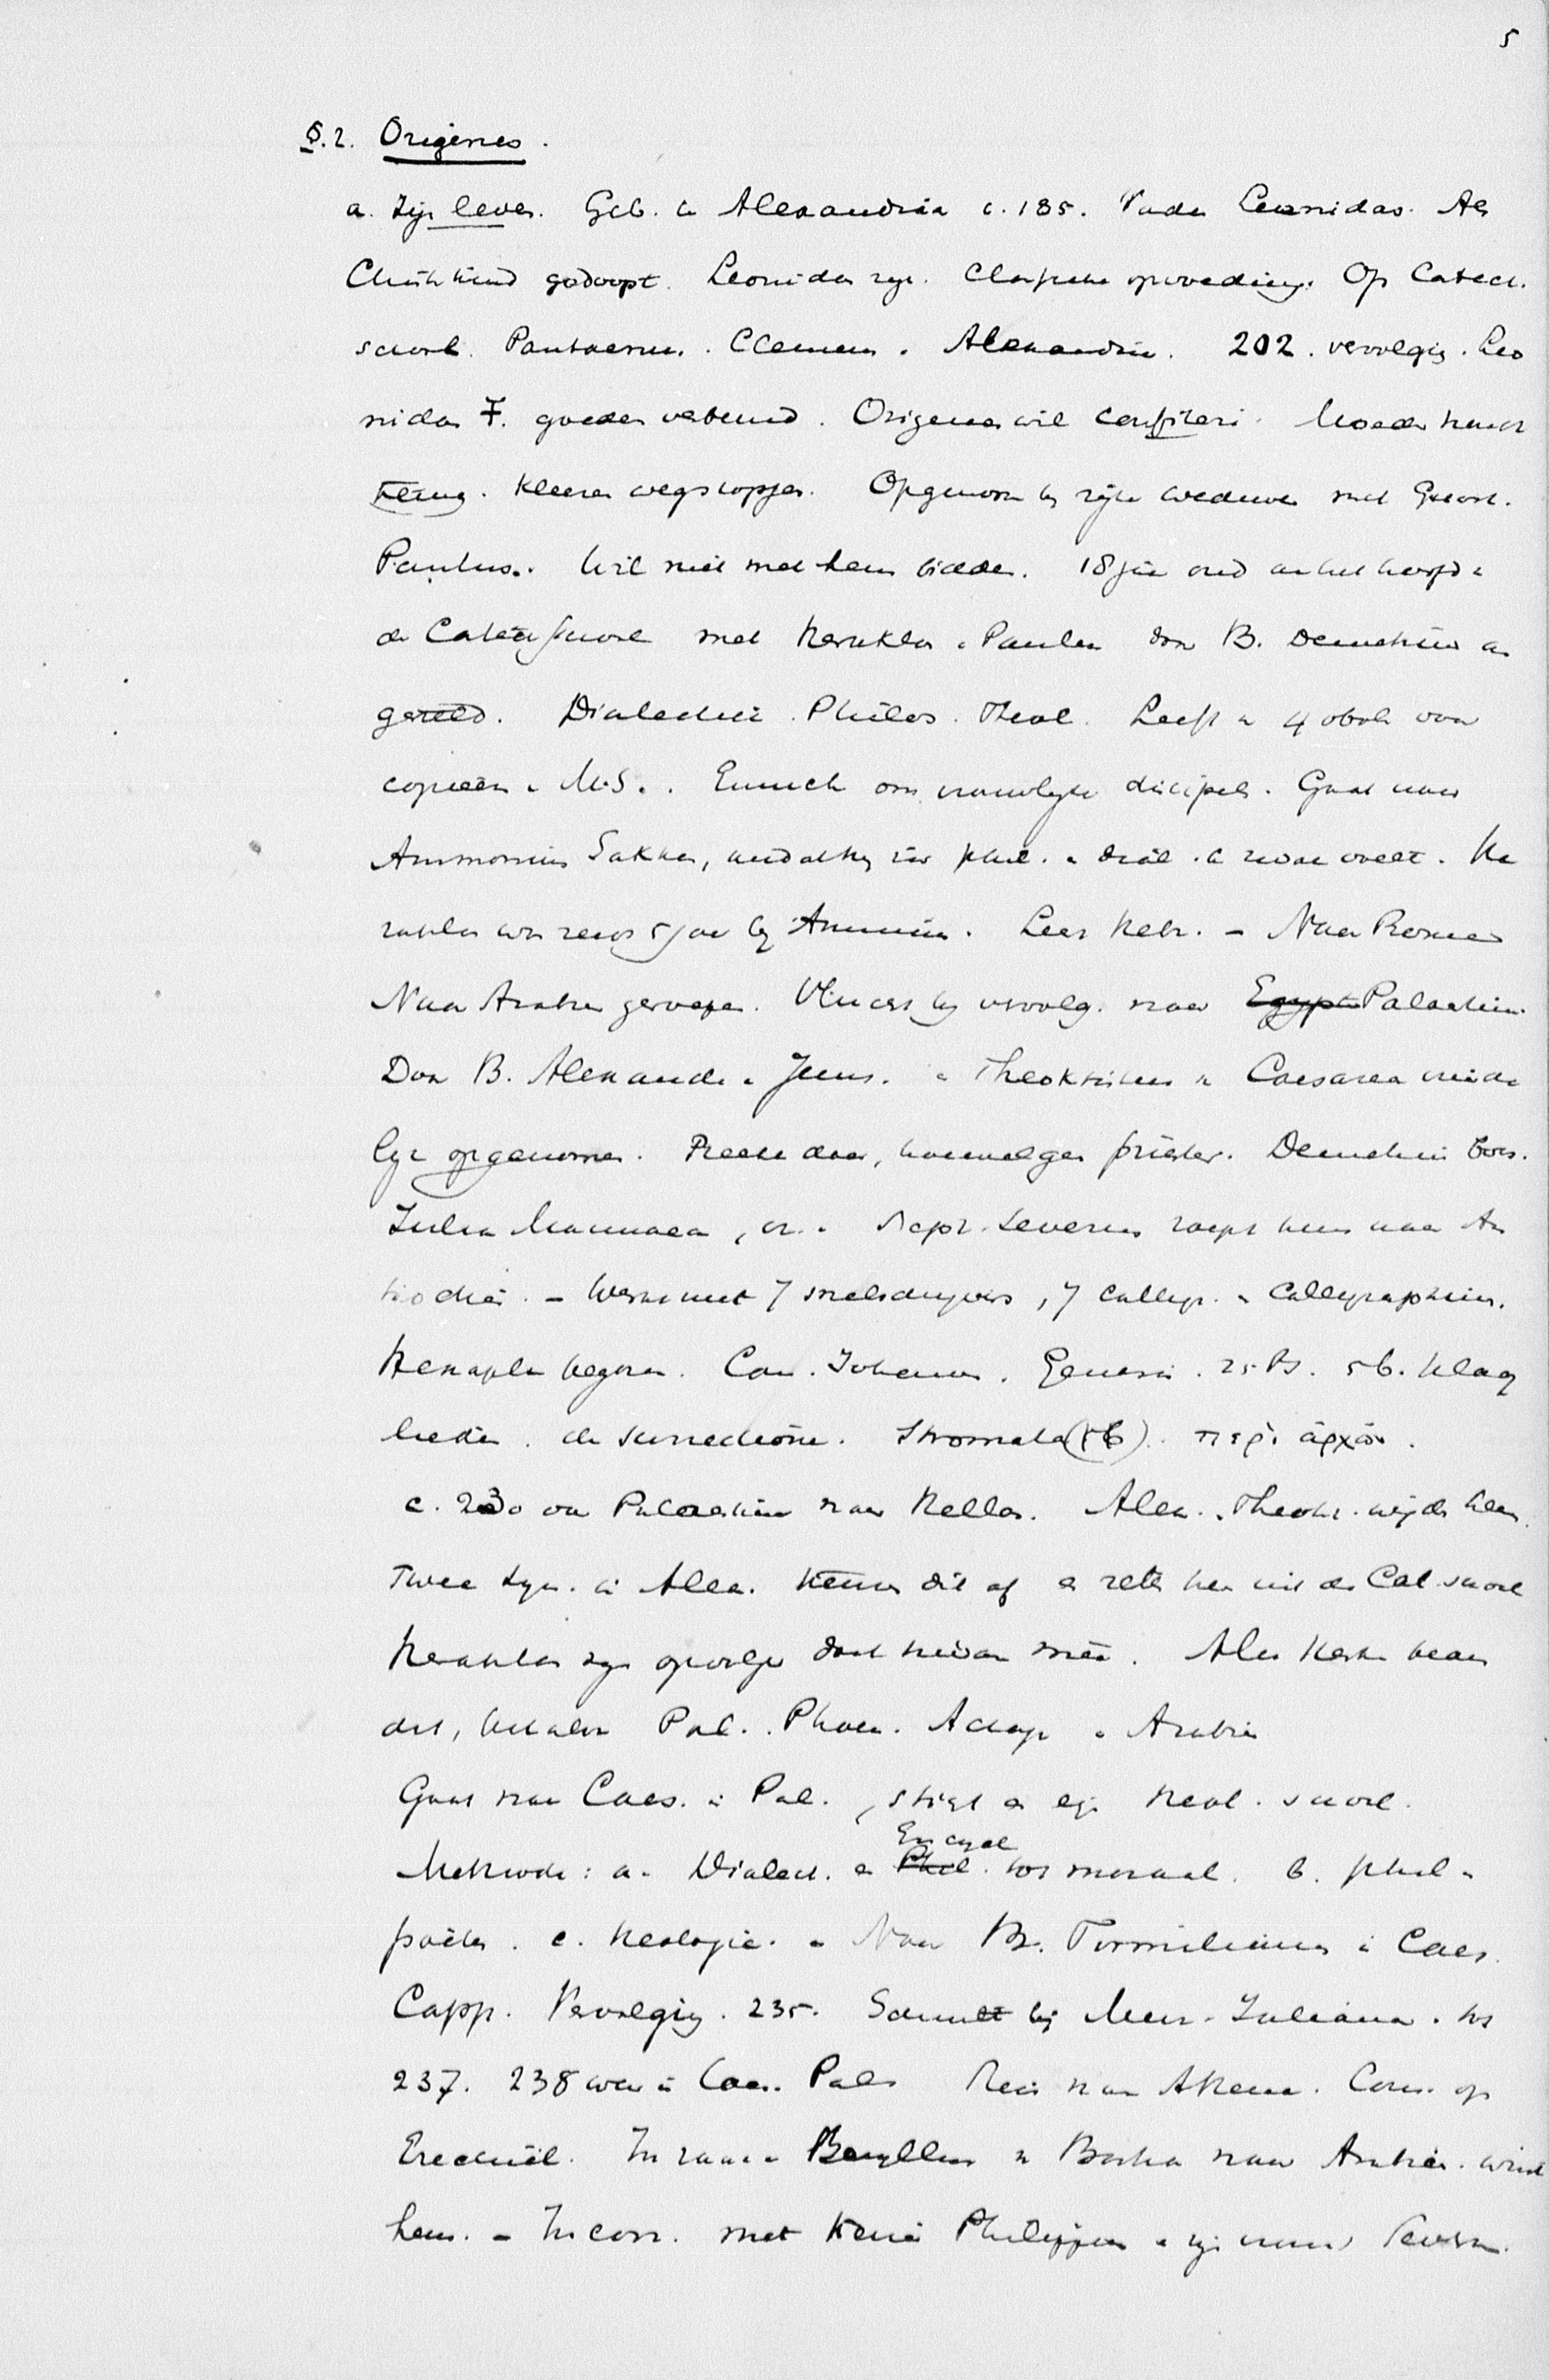 5
§.2. Origenes.
a. Zijn leven. Geb. in Alexandria c. 185. Vader Leonidas. Als
Christ kind gedoopt. Leonidas zijn. Classieke opvoeding. Op Catech.
school. Pantaenus. Clemens. Alexandrin. 202. vervolging. Leo
nidas †. goederen verbeurd. Origenes wil confiteri. Moeder houdt
terug. Kleeren wegstoppen. Opgenomen bij rijke weduwe met Gnost.
Paulus. Wil niet met hem bidden. 18 jaar oud aan het hoofd v
de Catech school met Heraklas Paulus door B. Demetrius aan
gesteld. Dialectiek. Philos. Theol. Leeft v 4 obolen van
copieën v M.S. Eunuch om vrouwelijke discipels. Gaat naar
Ammonius Sakkas, omdat hij in phil. en dial. zwak voelt. He
raklas was reeds 5 jaar bij Ammonius. Leer Hebr. – Naar Rome
Naar Arabië geroepen. Vlucht bij vervolg. naar Egypte Palaestina.
Door B. Alexander v Jerus. en Theoktistus v Caesarea vriende
lijk opgenomen. Preekt daar, hoewel geen priester. Demetrius boos.
Julia Mammaea, m. v Alex. Severus roept hem naar An
tiochië. – Werkt met 7 snelschrijvers, 7 calligr. en calligraphinen.
Hexapla begonnen. Com. Johannes. Genesis. 25 Ps. 5 b. Klaag
liederen. de resurrectione. Stromata περὶ ἀρχῶν.
c. 230 van Palaestina naar Hellas. Alex. Theokt. wijden hem.
Twee syn. in Alex. keuren dit af en zetten hem uit de Cat. school
Heraklas zijn opvolger doet hieraan mee. Alle kerken beamen
dit, behalve Pal. Phoen. Achaje en Arabië
Gaat naar Caes. in Pal., sticht er eig. theol. school.
Methode: a. Dialect. en Phil. Encycl tot moraal. b. phil. en
poëten. c. theologie. – Naar B. Firmilianus in Caes.
Capp. Vervolging. 235. Schuilt bij Mevr. Juliana. tot
237. 238 weer in Caes. Pal. Reis naar Athene. Com. op
Ezechiël. In zake v Beryllus v Bostra naar Arabië. wint
hem. – In corr. met keizer Philippus en zijn vrouw Severa.